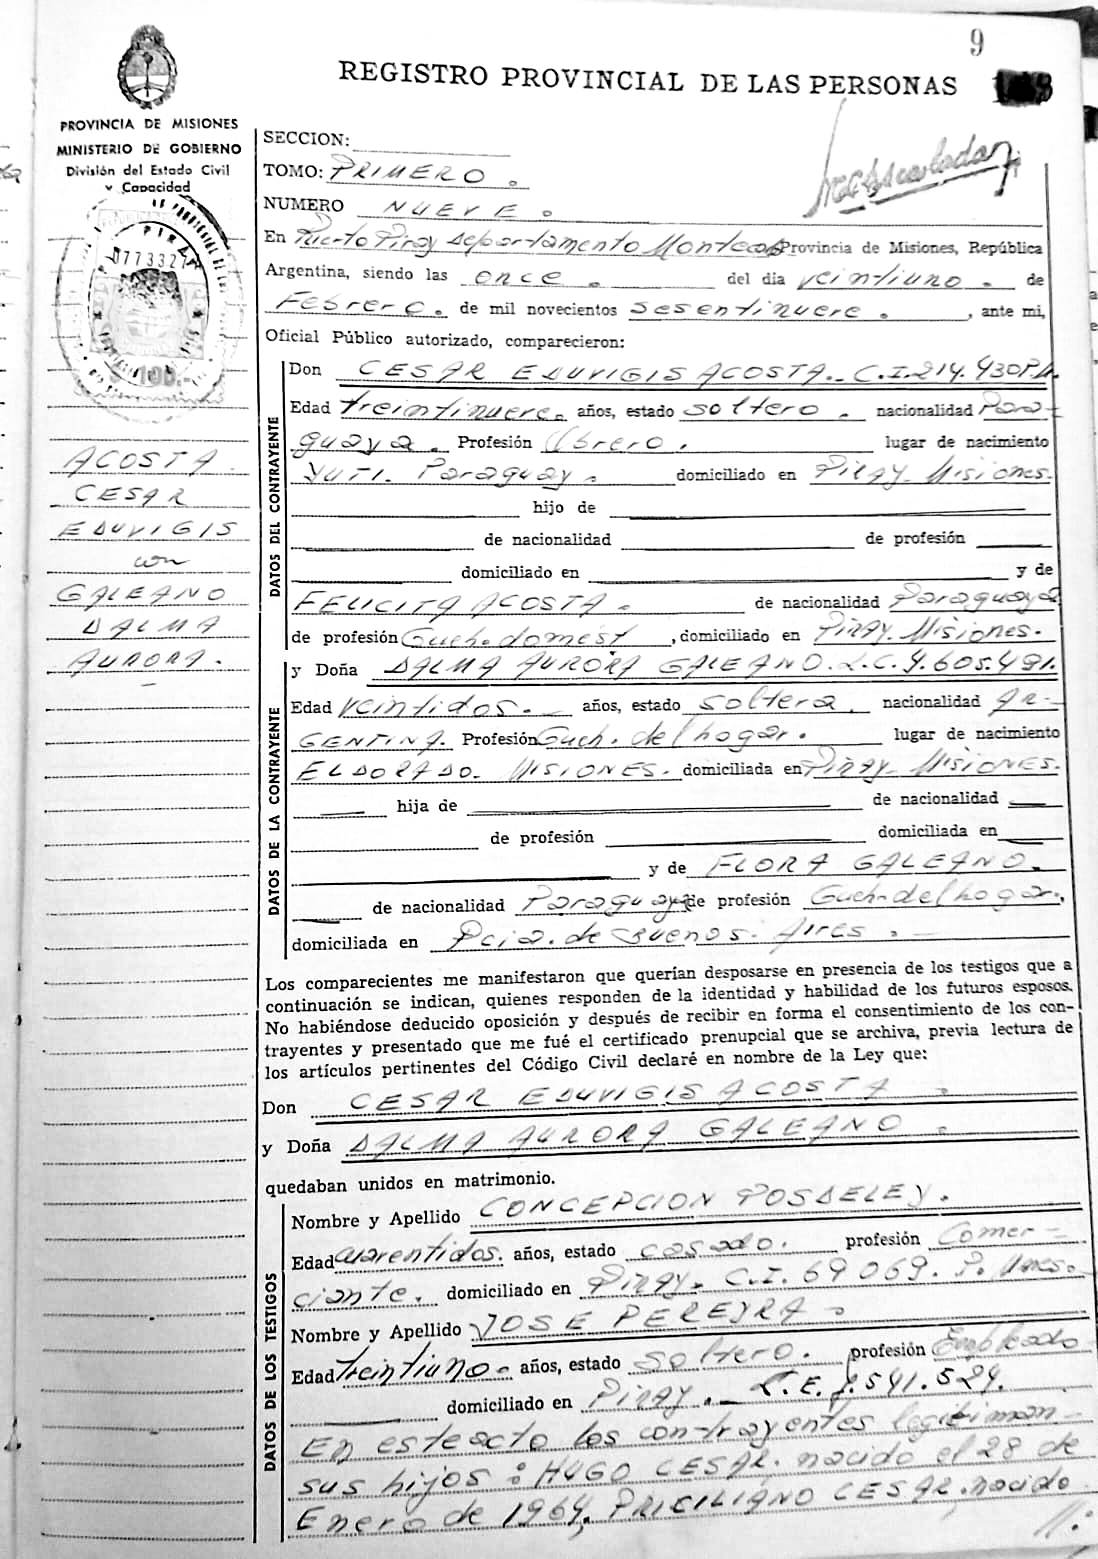 9
REGISTRO PROVINCIAL DE LAS PERSONAS
PROVINCIA DE MISIONES
MINISTERIO DE GOBIERNO
División del Estado Civil
y Capacidad
0773327
100.-
ACOSTA
CESAR
EDUVIGIS
con
GALEANO
DALMA
AURORA.
SECCION:
TOMO: PRIMERO.
NUMERO NUEVE.
En Puerto Piray departamento Montecarlo Provincia de Misiones, República
Argentina, siendo las once. del día veintiuno. de
Febrero. de mil novecientos sesentinueve. , ante mi,
Oficial Público autorizado, comparecieron:
DATOS DEL CONTRAYENTE
Don CESAR EDUVIGIS ACOSTA.- C.I. 214.430
Edad treintinueve. años, estado soltero. nacionalidad Para-
guaya. Profesión Obrero. lugar de nacimiento
YUTI. Paraguay. domiciliado en Piray Misiones.
hijo de
de nacionalidad de profesión
domiciliado en y de
FELICITA ACOSTA. de nacionalidad Paraguaya
de profesión Queh. domést , domiciliado en Piray. Misiones.
DATOS DE LA CONTRAYENTE
y Doña DALMA AURORA GALEANO. L.C. 4.605.491.
Edad veintidos.- años, estado soltera. nacionalidad AR-
GENTINA. Profesión Queh. del hogar. lugar de nacimiento
ELDORADO. MISIONES. domiciliada en Piray- Misiones.
hija de de nacionalidad
de profesión domiciliada en
y de FLORA GALEANO.
de nacionalidad Paraguaya de profesión Queh-del hogar.,
domiciliada en Pcia. de Buenos. Aires.-
Los comparecientes me manifestaron que querían desposarse en presencia de los testigos que a
continuación se indican, quienes responden de la identidad y habilidad de los futuros esposos.
No habiéndose deducido oposición y después de recibir en forma el consentimiento de los con-
trayentes y presentado que me fué el certificado prenupcial que se archiva, previa lectura de
los artículos pertinentes del Código Civil declaré en nombre de la Ley que:
Don CESAR EDUVIGIS ACOSTA.
y Doña DALMA AURORA GALEANO.
quedaban unidos en matrimonio.
DATOS DE LOS TESTIGOS
Nombre y Apellido CONCEPCION POSDELEY.
Edad cuarentidos. años, estado casado. profesión Comer-
ciante. domiciliado en Piray- C.I. 69069. P.
Nombre y Apellido JOSE PEREYRA.
Edad treintiuno. años, estado soltero. profesión Empleado
domiciliado en Piray. L.E. 541.524.
En este acto los contrayentes legitiman-
sus hijos: HUGO CESAR. nacido el 28 de
Enero de 1964, PRICILIANO CESAR. nacido
//.